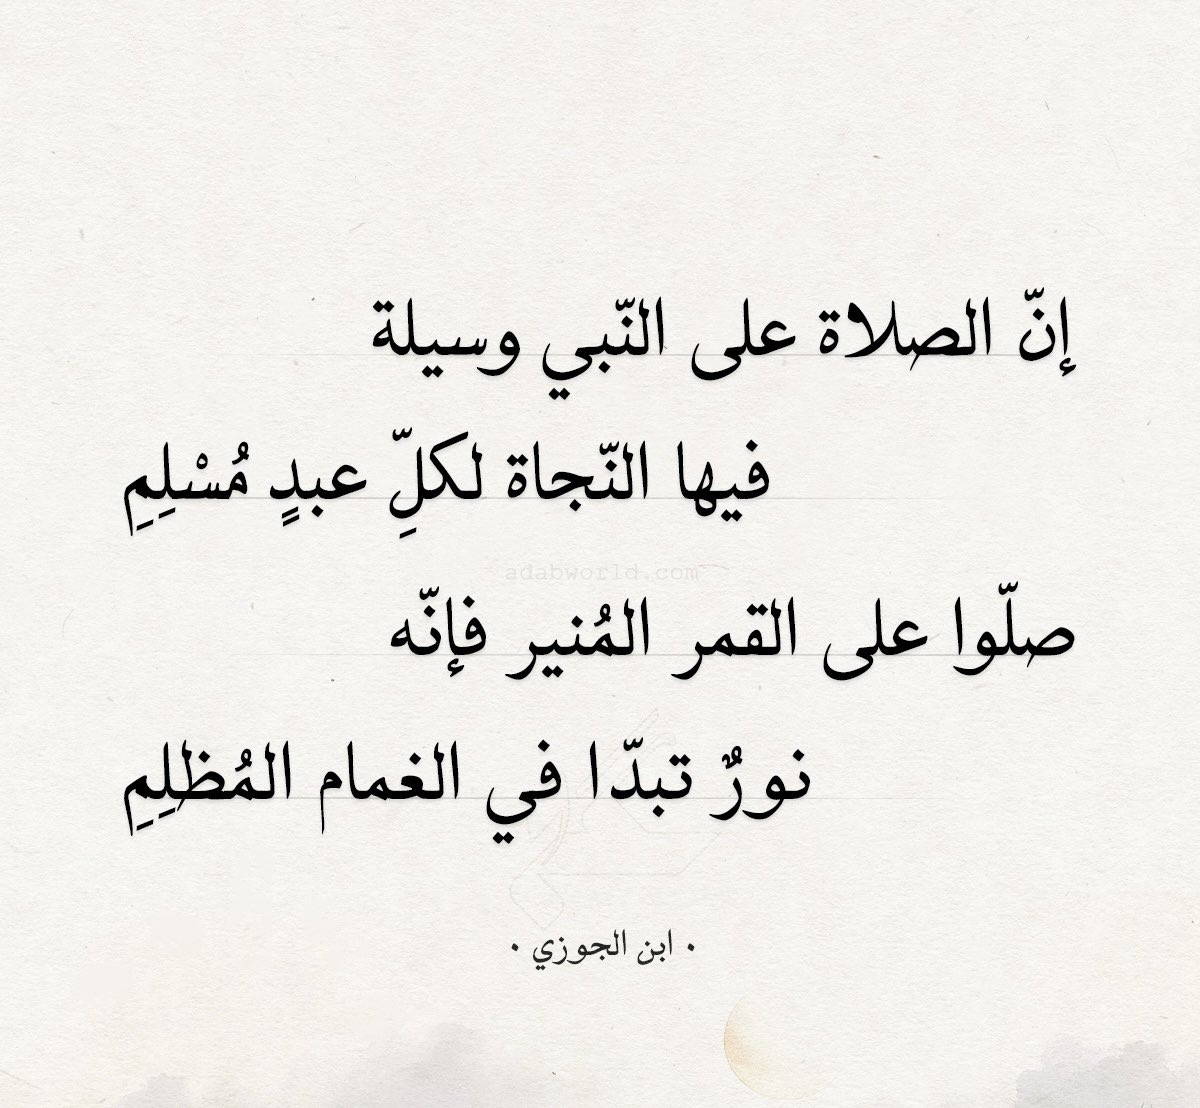 إنّ الصلاة على النّبي وسيلة
فيها النّجاة لكلِّ عبدٍ مُسْلِمِ
adabworld.com
صلّوا على القمر المُنير فإنّه
نورٌ تبدّا في الغمام المُظلِمِ
• ابن الجوزي •